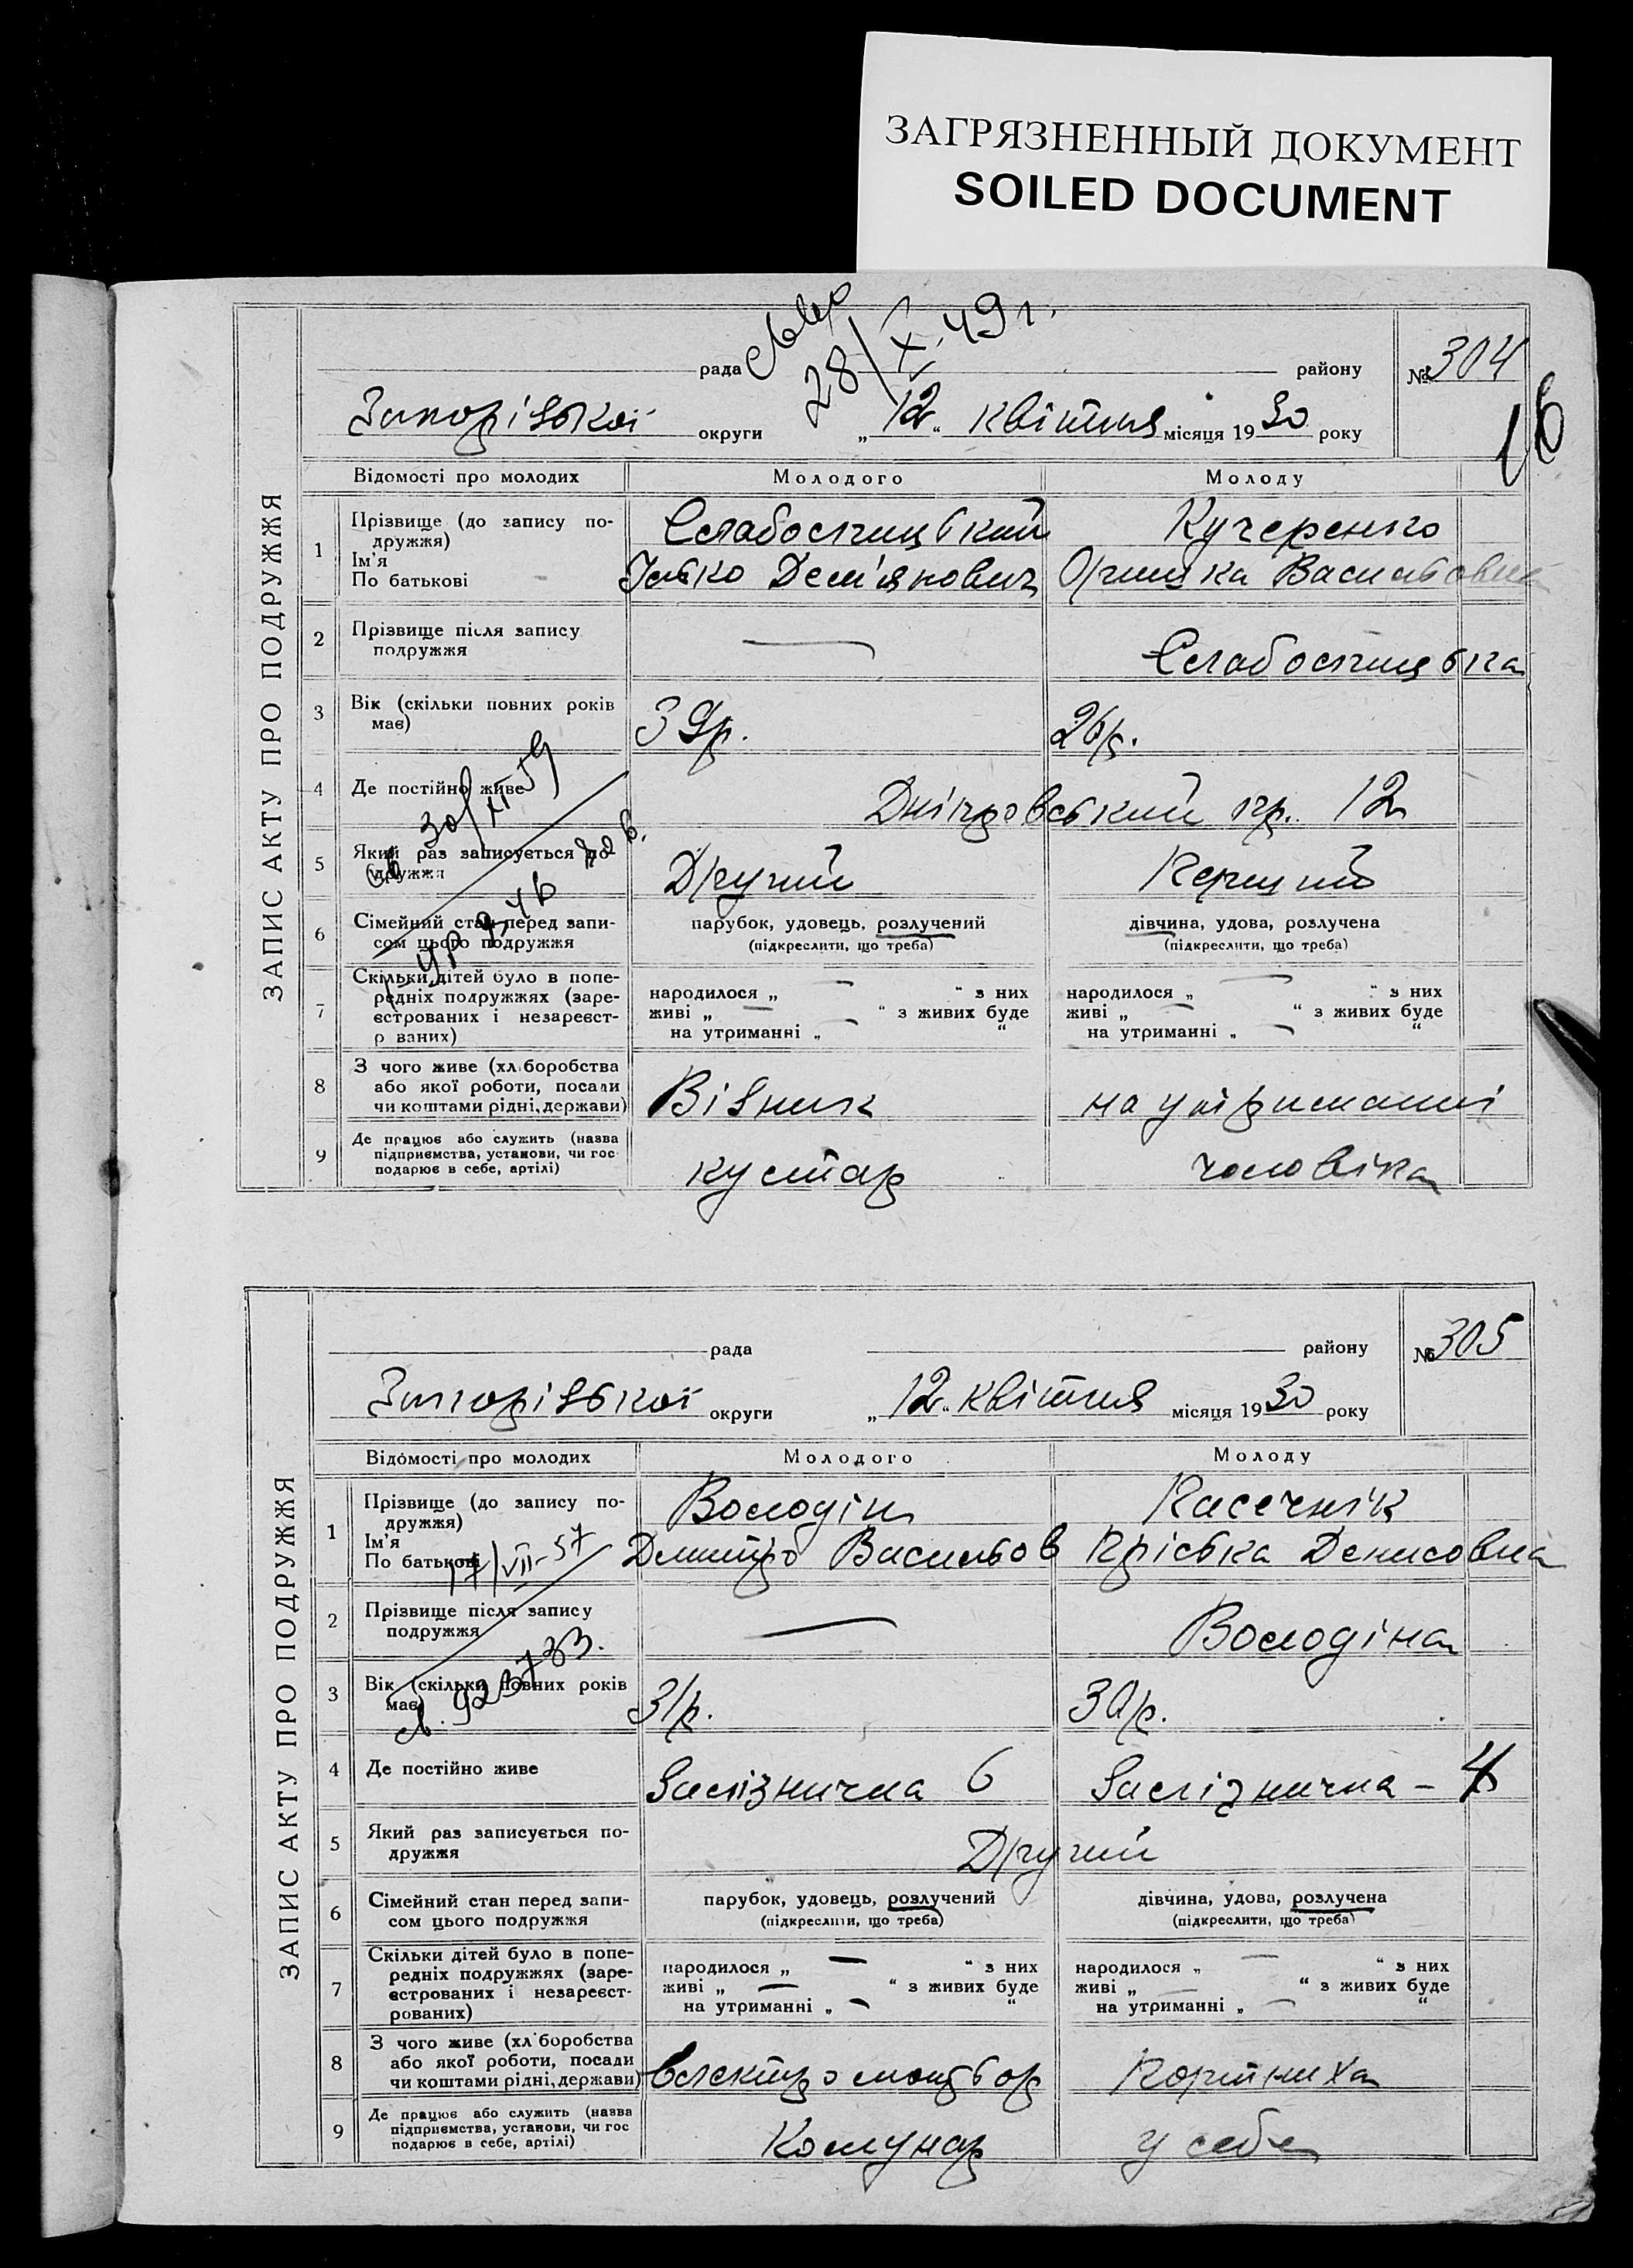 ЗАГРЯЗНЕННЫЙ ДОКУМЕНТ
SOILED DOCUMENT
ЗАПИС АКТУ ПРО ПОДРУЖЖЯ
28/X-49 г.
рада району № 304
16
Запорізької округи „12“ квітня місяця 1930 року
Відомості про молодих Молодого Молоду
1 Прізвище (до запису подружжя) Слабоспицький Кучеренко
Ім'я
По батькові Ілько Дем'янович Оришка Василівна
2 Прізвище після запису
подружжя — Слабоспицька
3 Вік (скільки повних років
має) 39р. 26р.
30/XI 59
4 Де постійно живе Дніпровський пр. 12
5 Який раз записується по-
дружжя Другий Перший
6 Сімейний стан перед запи- парубок, удовець, розлучений дівчина, удова, розлучена
сом цього подружжя (підкреслити, що треба) (підкреслити, що треба)
7 Скільки дітей було в попе-
редніх подружжях (заре- народилося „ — “ з них народилося „ — “ з них
єстрованих і незареєст- живі „ — “ з живих буде живі „ — “ з живих буде
р ваних) на утриманні „ — “ на утриманні „ — “
8 З чого живе (хл.боробства
або якої роботи, посади
чи коштами рідні, держави) Візник на утриманні
9 Де працює або служить (назва
підприємства, установи, чи гос
подарює в себе, артілі) кустар чоловіка
ЗАПИС АКТУ ПРО ПОДРУЖЖЯ
рада району № 305
Запорізької округи „12“ квітня місяця 1930 року
Відомості про молодих Молодого Молоду
1 Прізвище (до запису по-
дружжя) Володін Касечнік
Ім'я
По батькові Дмитро Васильов Пріська Денисовна
17/VII-57
2 Прізвище після запису
подружжя — Володіна
св. 923733.
3 Вік (скільки повних років
має) 31р. 30р.
4 Де постійно живе Залізнична 6 Залізнична –
5 Який раз записується по-
дружжя Другий
6 Сімейний стан перед запи- парубок, удовець, розлучений дівчина, удова, розлучена
сом цього подружжя (підкреслити, що треба) (підкреслити, що треба)
7 Скільки дітей було в попе-
редніх подружжях (заре- народилося „ — “ з них народилося „ — “ з них
єстрованих і незареєст- живі „ — “ з живих буде живі „ — “ з живих буде
рованих) на утриманні „ — “ на утриманні „ — “
8 З чого живе (хл боробства
або якої роботи, посади
чи коштами рідні, держави) Електромоньор Портниха
9 Де працює або служить (назва
підприємства, установи, чи гос
подарює в себе, артілі) Комунар у себе